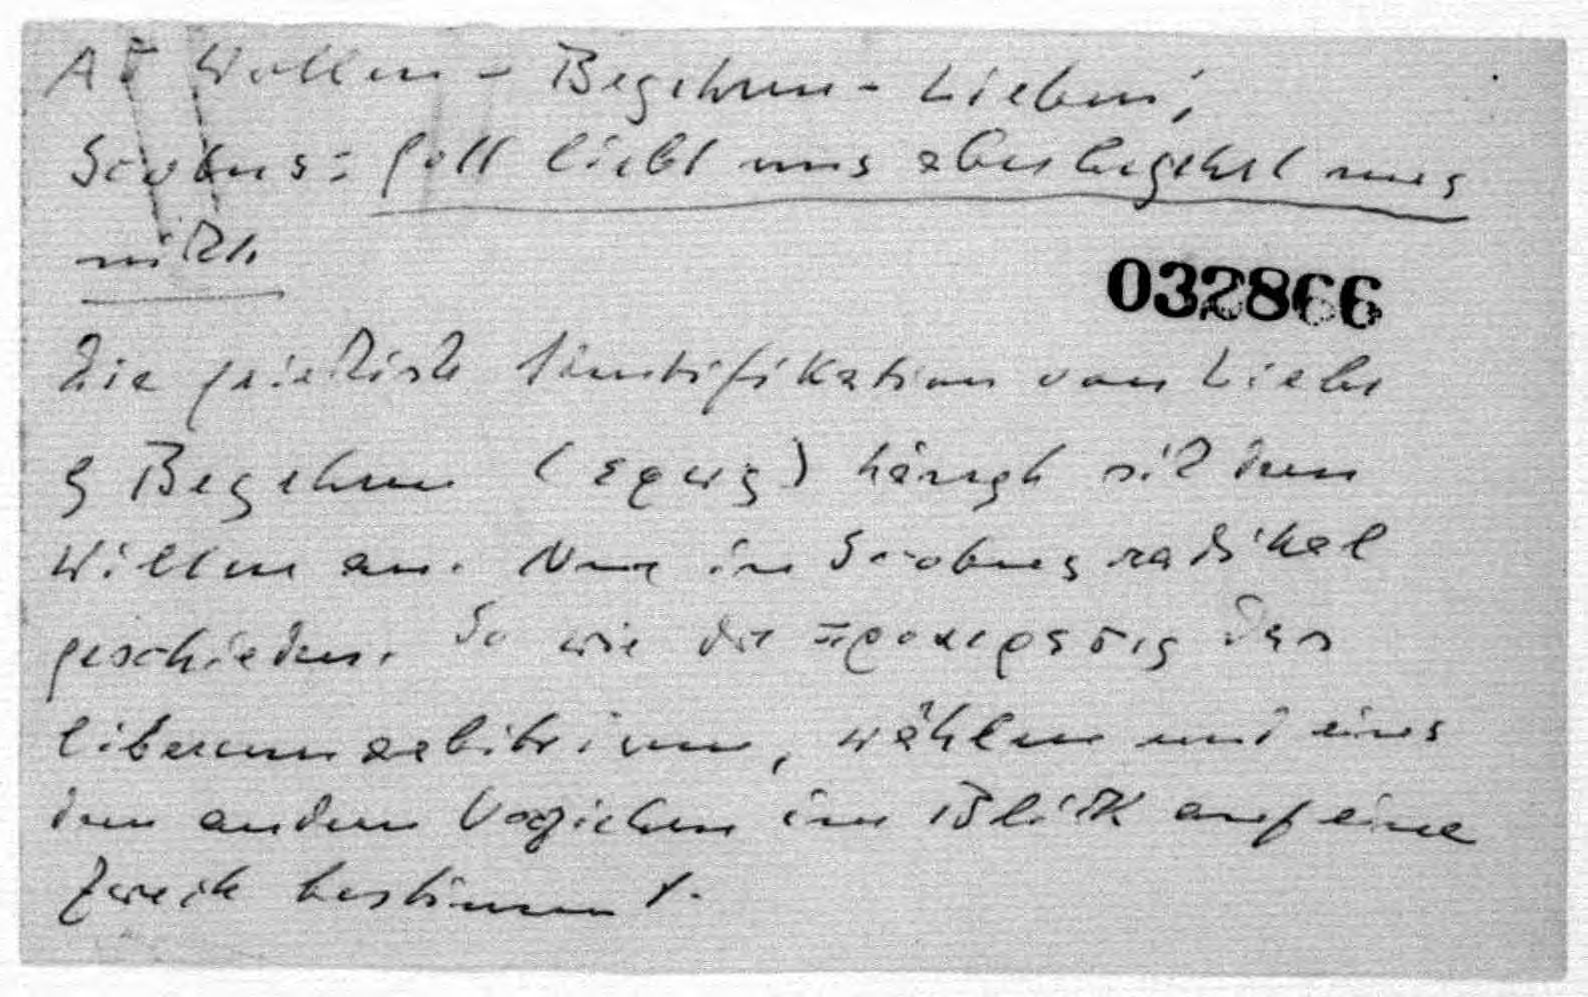 Wollen - Begehren - Lieben;
Scotus: Gott liebt uns aber begehrt uns
nicht.
032866
Die griechische Identifikation von Liebe
& Begehren (ερως) hängt sich dem
Willen an. Nur in Scotus radikal
geschieden. So wie die προαιρεσις den
liberum arbitrium, wählen und eines
dem andern Vorziehen im Blick auf eine
Zweck bestimmt.